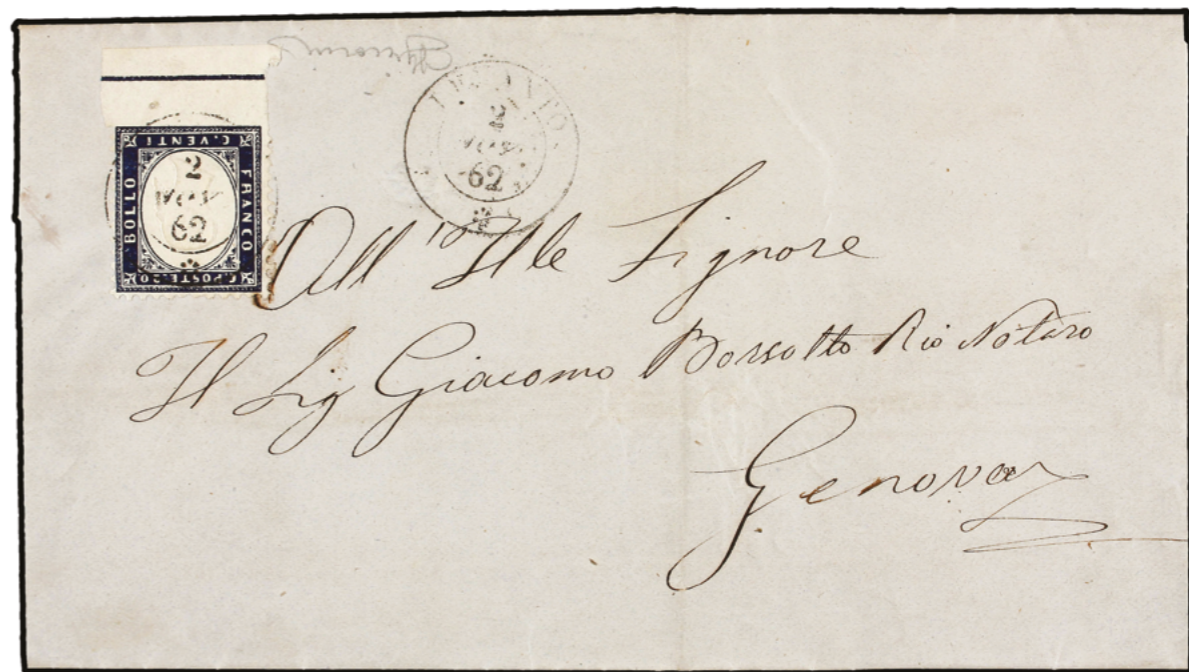 C. VENTI
BOLLO
FRANCO
C. POSTE. 20
2
NOV
62
2
NOV
62
All' Ille Signore
Il Sig Giacomo Borsotto Rio Notaro
Genova